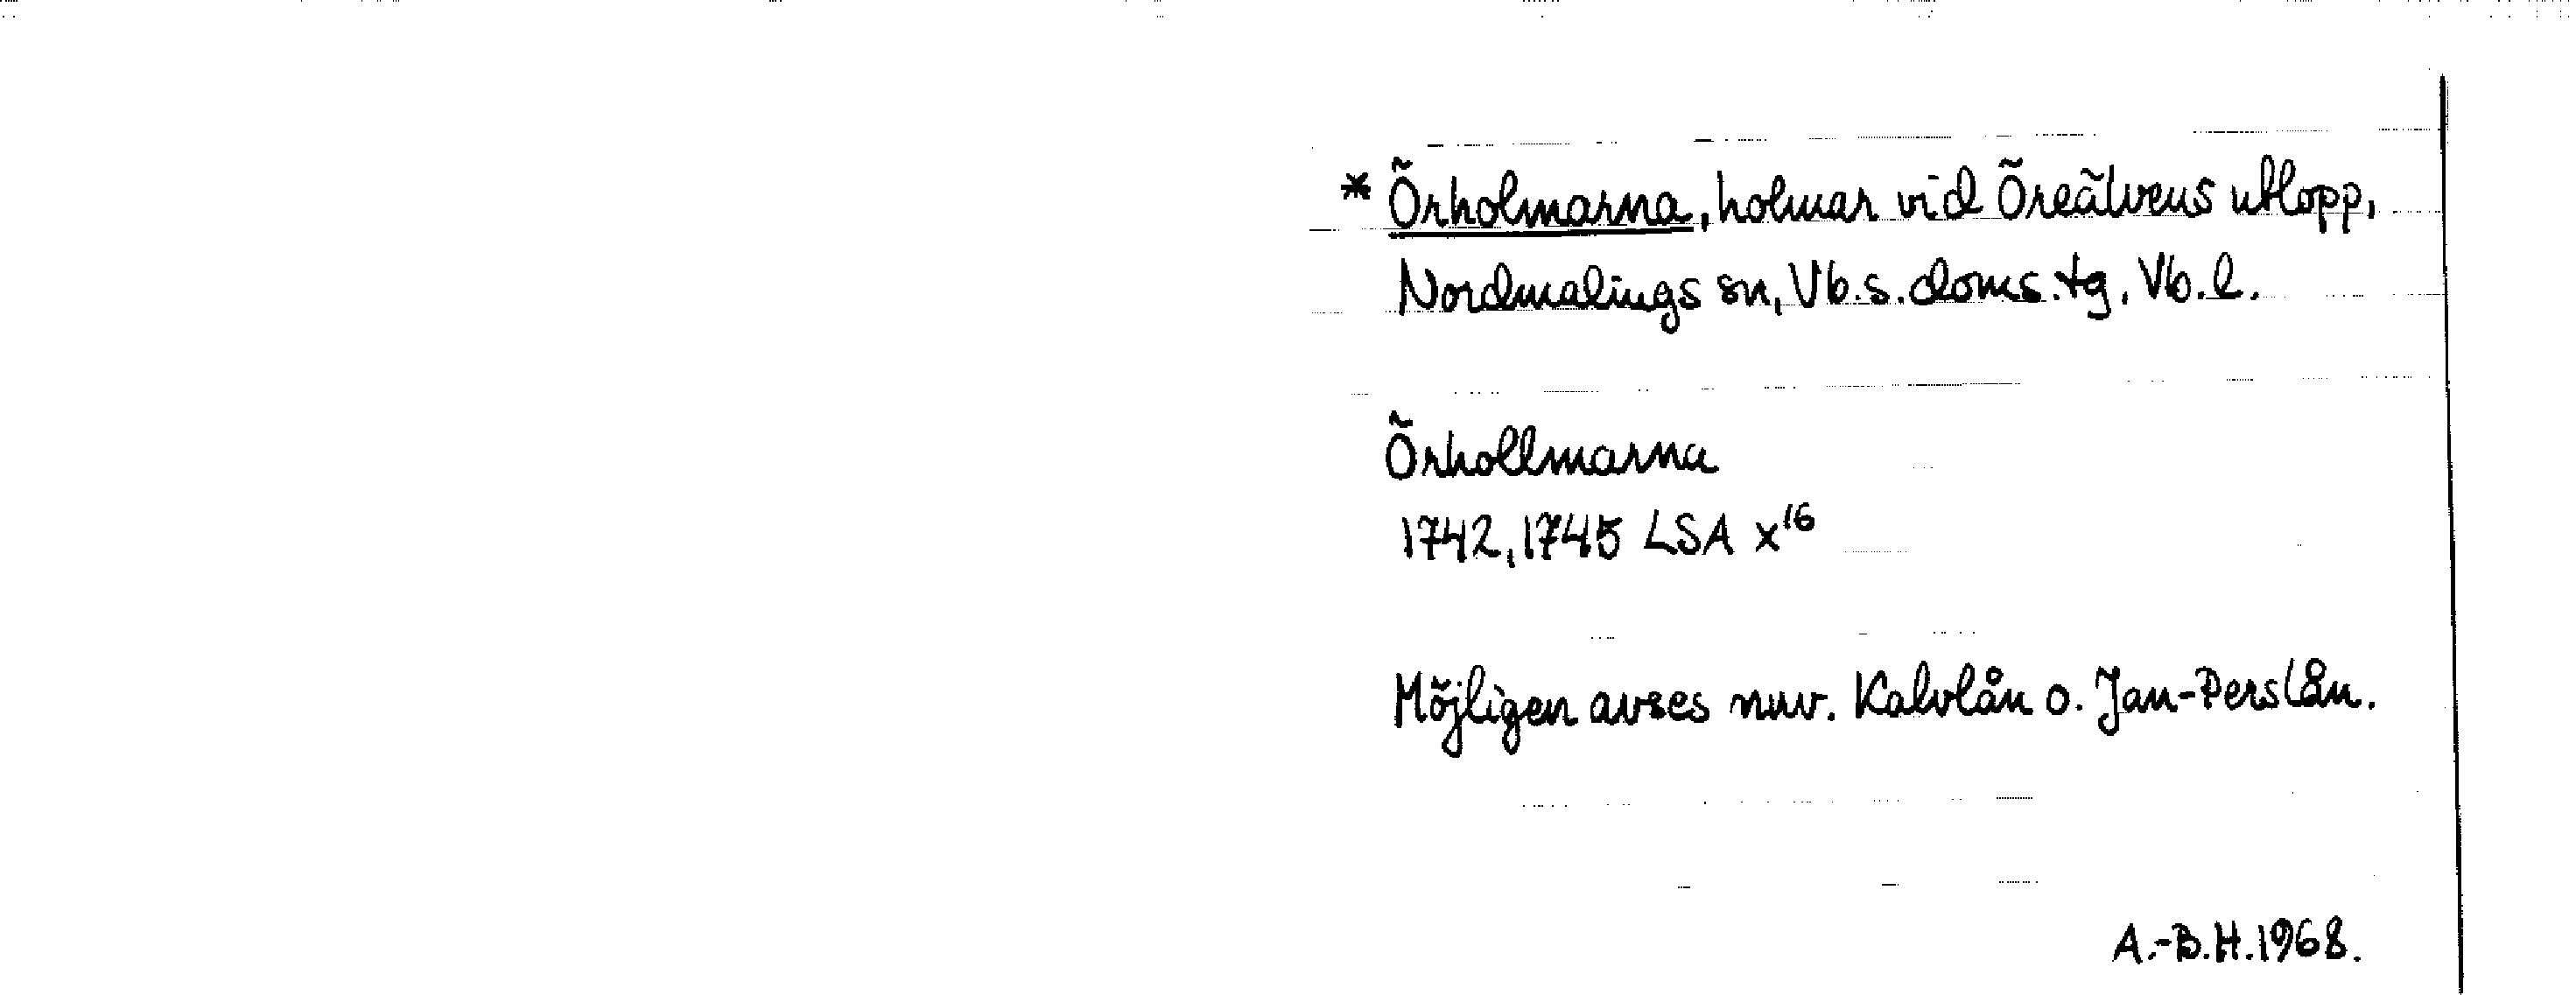 * Örholmarna, holmar vid Öreälvens utlopp,
Nordmalings sn, Vb.s.doms.tg, Vb.l.
Örhollmarna
1742, 1745 LSA x¹⁶
Möjligen avses nuv. Kalvlån o. Jan-Perslån.
A.-B.H.1968.